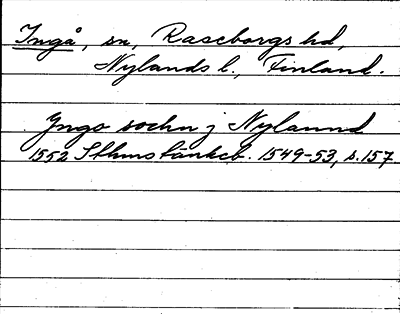 Ingå, sn, Raseborgs hd,
Nylands l., Finland.
Yngo sochn j Nylannd
1552 Sthms tänkeb. 1549-53, s. 157